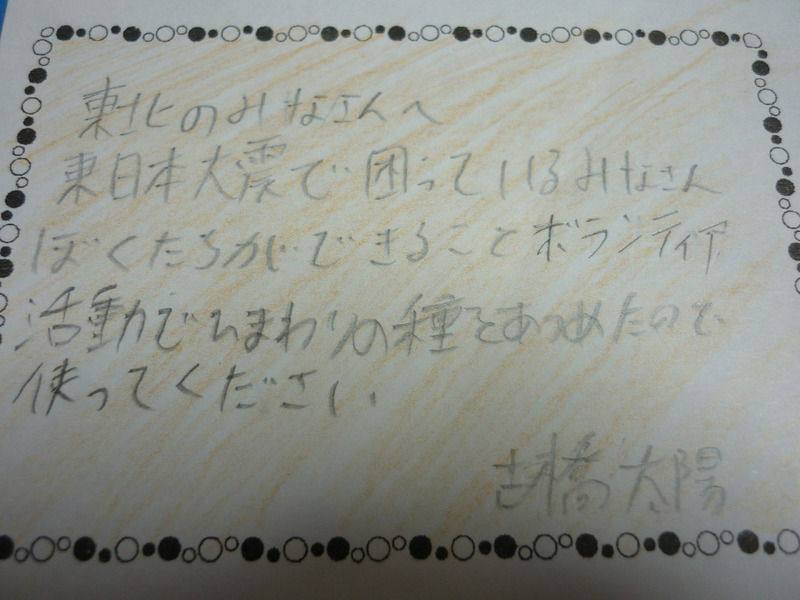 東北のみなさんへ
東日本大震で困っているみなさん
ぼくたちができること ボランティア
活動でひまわりの種をあつめたので
使ってください
古橋太陽